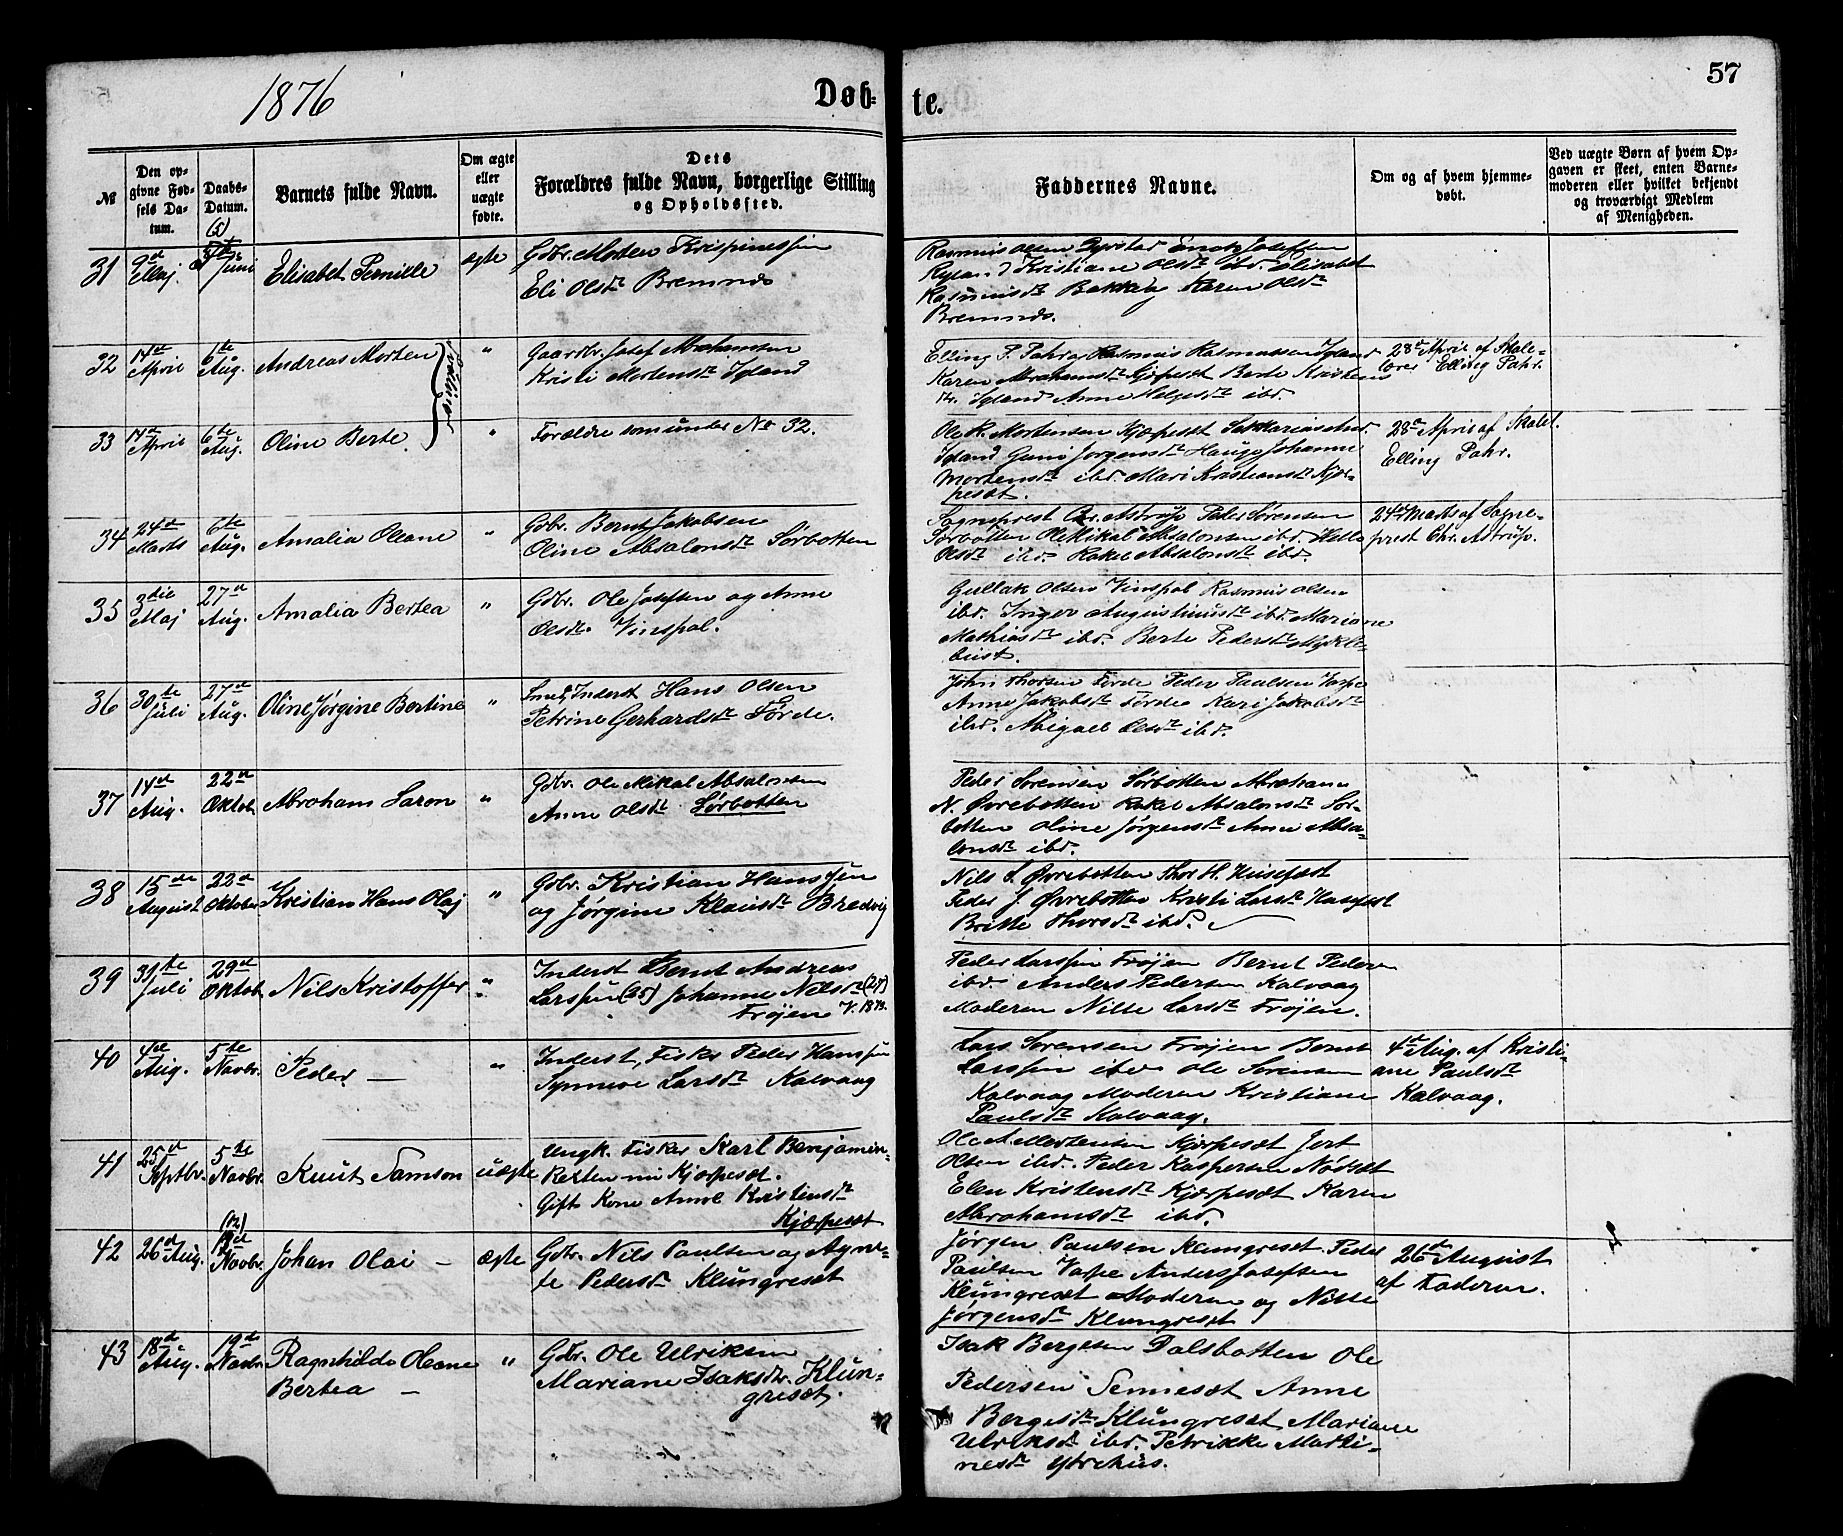 1876
Døb-
te.
57
№
Den op-
givne Fød-
sels Da-
tum.
Daabs-
Datum.
Barnets fulde Navn.
Om ægte
eller
uægte
fødte.
Dets
Forældres fulde Navn, borgerlige Stilling
og Opholdssted.
Faddernes Navne.
Om og af hvem hjemme-
døbt.
Ved uægte Børn af hvem Op-
gaven er skeet, enten Barne-
moderen eller hvilket bekjendt
og troværdigt Medlem
af Menigheden.
31
9d
Maj.
Juni
Elisabet Pernille
ægte
Gdbr. Morten Krispinussen
Eli Olsdtr Bremnes
Rasmus Olsen Gyrstad Enok Josefsen
Ryland Kristiane Olsdtr ibd. Elisabet
Rasmusdtr Bakkøy Karen Olsdtr
Bremnes.
32
14d
April
6te
Aug.
Andreas Morten
Tvilling
"
Gaardbr. Josef Abrahamsen
Kristi Mortensdtr Igland
Elling P. Pahr Rasmus Rasmussen Igland
Karen Abrahamsdtr Kjøpeset Berte Kristens
dtr. Igland Anne Helgesdtr ibd.
28de April af Skole-
lærer Elling Pahr.
33
14d
April
6te
Aug.
Oline Berte.
"
Forældre som under No 32.
Ole R. Mortensen Kjøpeset Sakkarias And.
Igland Guni Jørgensdtr Hauge Johanne
Mortensdtr ibd. Mari Kristiansdtr Kjør-
peset.
28de April af Skolel.
Elling Pahr.
34
24d
Marts
6te
Aug.
Amalia Oleane
"
Gdbr. Bernt Jakobsen
Oline Absalonsdtr Sørbotten
Sogneprest Chr. Astrup Peder Sørensen
Sørbotten Ole Mikal Absalonsen ibd. Helle
Olsdtr ibd. Rakel Absalonsdtr ibd.
24de Marts af Sogne-
prest Chr. Astrup.
35
3die
Maj
27d
Aug.
Amalia Bertea
"
Gdbr. Ole Josefsen og Anne
Olsdtr. Vinspol.
Gullak Olsen Vinspol Rasmus Olsen
ibd. Inger Augustinusdtr ibd. Mariane
Mathiasdtr ibd. Berte Pedersdtr Mykle-
bust.
36
30te
Juli
27d
Aug.
Oline Jørgine Bertine
"
Smed, Inderst Hans Olsen
Petrine Gerhardsdtr Førde.
John Thorsen Førde Peder Paulsen Varpe
Anne Jakobsdtr Førde Kari Jakobsdtr
ibd. Abigael Olsdtr ibd.
37
14d
Aug.
22d
Oktob.
Abraham Saron
"
Gdbr. Ole Mikal Absalonsen
Anne Olsdtr Sørbotten
Peder Sørensen Sørbotten Abraham
N. Øvrebotten Rakel Absalonsdtr Sør-
botten Oline Jørgensdtr Anne Absa-
lonsdtr ibd.
38
15de
August
22d
Oktober
Kristian Hans Olaj
"
Gdbr. Kristian Hanssen
og Jørgine Klausdtr Bredvig
Nils S. Øvrebotten Thor H. Husefest
Peder J. Øvrebotten Kristi Larsdtr Husefest
Britte Thorsdtr ibd.
39
31te
Juli
29d
Oktob.
Nils Kristoffer
"
Inderst Bernt Andreas
Larssen (25) Johanne Nilsdtr (28)
Frøjen V. 1873.
Peder Larssen Frøjen Bernt Pedersen
ibd. Anders Pedersen Kalvaag
Moderen Nille Larsdtr Frøjen.
40
4de
Aug.
5te
Novbr.
Peder —
"
Inderst, Fisker Peder Hanssen
Synneve Larsdtr Kalvaag
Lars Sørensen Frøjen Bernt
Larssen ibd. Ole Sørensen
Kalvaag Moderen Kristiane
Paulsdtr Kalvaag.
4de Aug. af Kristi-
ane Paulsdtr
Kalvaag.
41
25d
Septbr.
5te
Novbr.
Knut Samson
uægte
Ungk. Fisker Karl Benjamin
Kjørpeset.
Gift Kone Anne Kristensdtr
Kjørpeset
Ole A. Mortensen Kjørpeset Jert
Olsen ibd. Peder Kaspersen Nødset
Elen Kristensdtr Kjørpeset Karen
Abrahamsdtr ibd.
42
26d Aug.
(12)
Novbr.
Johan Olai —
ægte
Gdbr. Nils Paulsen og Agne-
te Pedersdtr Klungreset
Jørgen Paulsen Klungreset Peder
Paulsen Varpe Anders Josefsen
Klungreset Moderen og Nille
Jørgensdtr Klungreset
26de August
af Faderen.
43
18d
Aug.
19de
Novbr.
Ragnhilda Oleane
Bertea —
"
Gdbr. Ole Ulriksen
Mariane Isaksdtr. Klun-
greset.
Isak Bergesen Dalsbotten Ole
Pedersen Senneset Anne
Børgesdtr Klungreset Mariane
Ulriksdtr ibd. Petrikke Marti-
nesdtr Ytrehus.